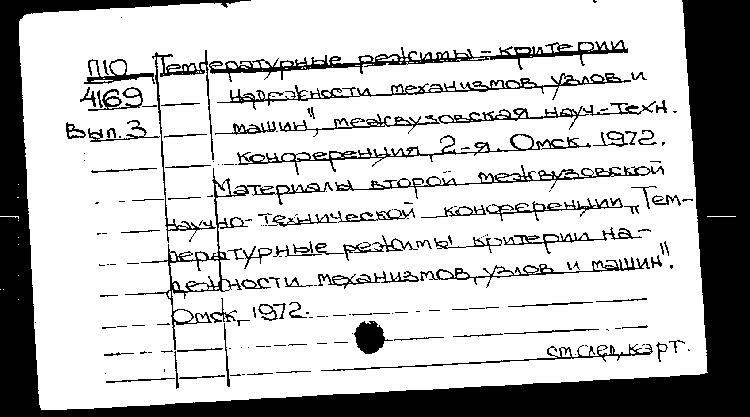 П10 Температурные режимы - критерии
4169 надежности механизмов, узлов и
Вып. 3 машин", межвузовская науч.-техн.
конференция, 2-я. Омск. 1972.
Материалы второй межвузовской
научно-технической конференции „Тем-
пературные режимы критерии на-
дежности механизмов, узлов и машин".
Омск, 1972.
см. след. карт.